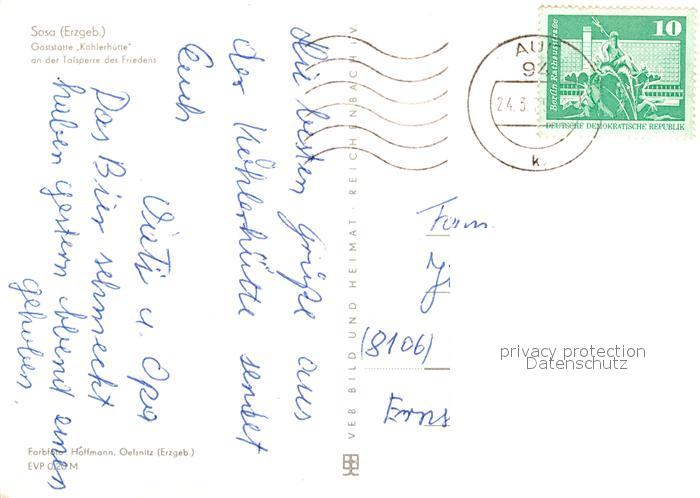 Sosa (Erzgeb.)
Gaststätte „Köhlerhütte"
an der Talsperre des Friedens
Die besten Grüße aus
der Köhlerhütte sendet
Euch
u. Opa
Das Bier schmeckt
haben gestern Abend einen
gehoben.
Farbfoto: Hoffmann, Oelsnitz (Erzgeb.)
EVP 0,20 M
VEB BILD UND HEIMAT · REICHENBACH I. V.
AUE
94
24.3.
k
10
Berlin Rathausstraße
DEUTSCHE DEMOKRATISCHE REPUBLIK
Fam.
(8106)
Erns
privacy protection
Datenschutz